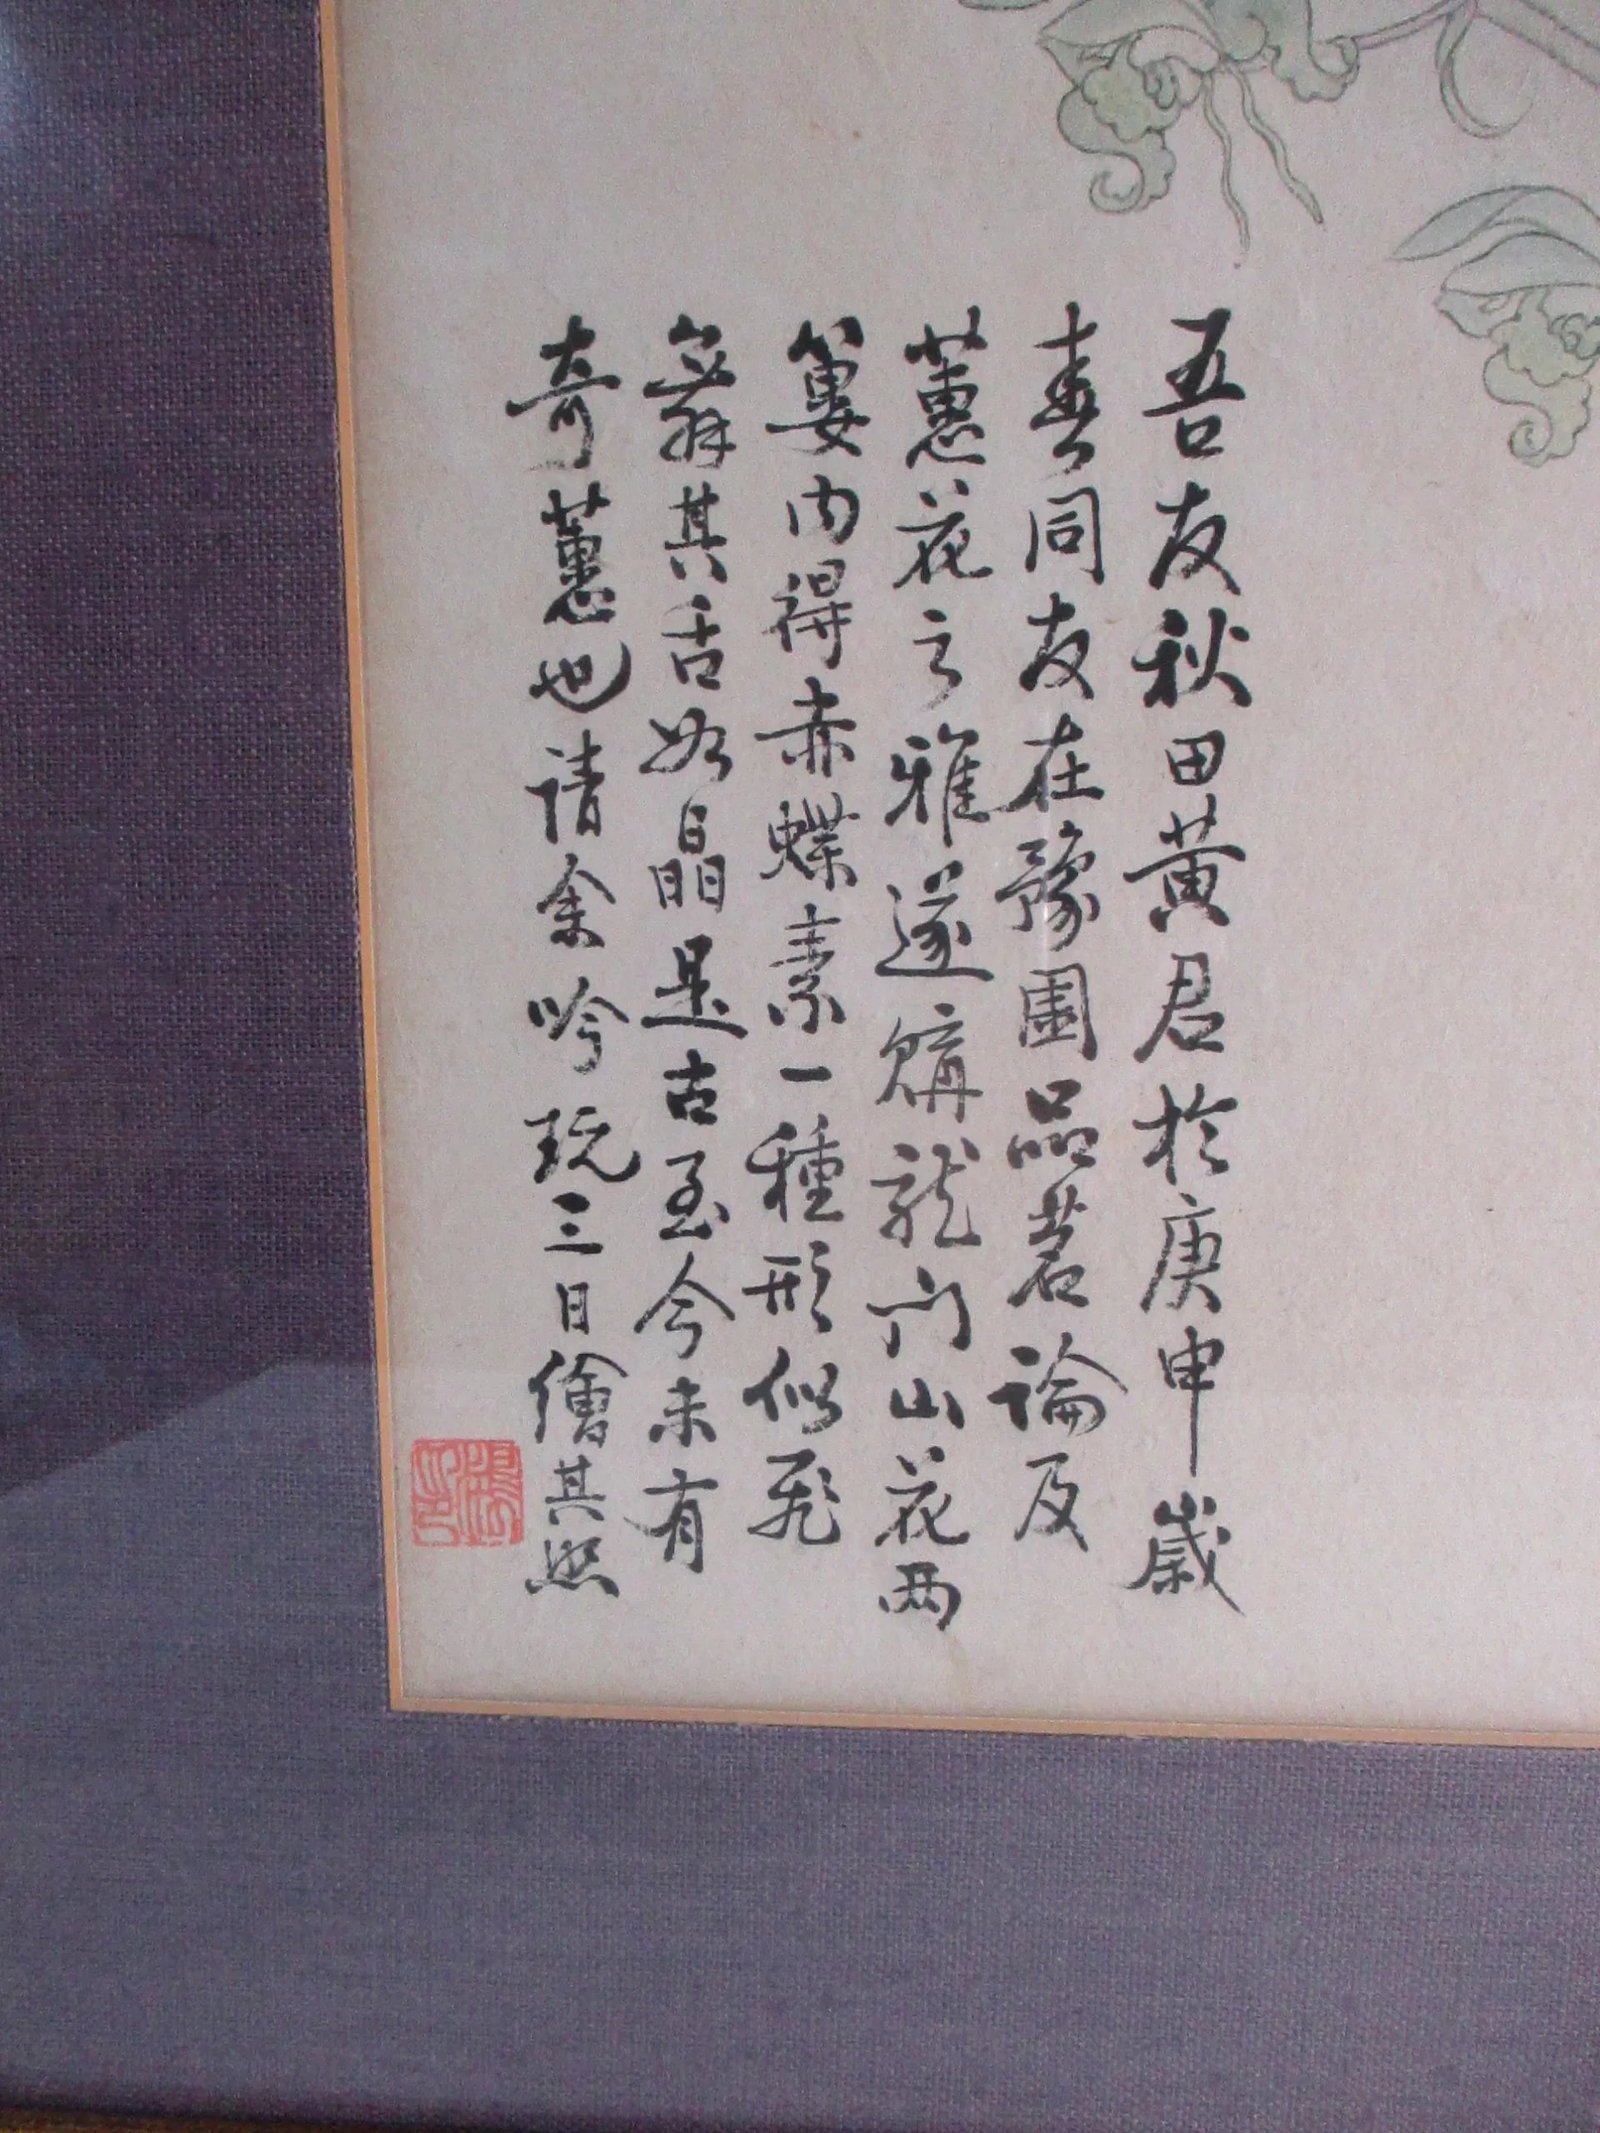 吾友秋田黄君於庚申歲
春同友在豫園品茗論及
蕙花之雅遂購龍门山花两
簍内得赤蝶素一種形似飛
舞其舌如晶是古至今未有
奇蕙也请余吟玩三日繪其照